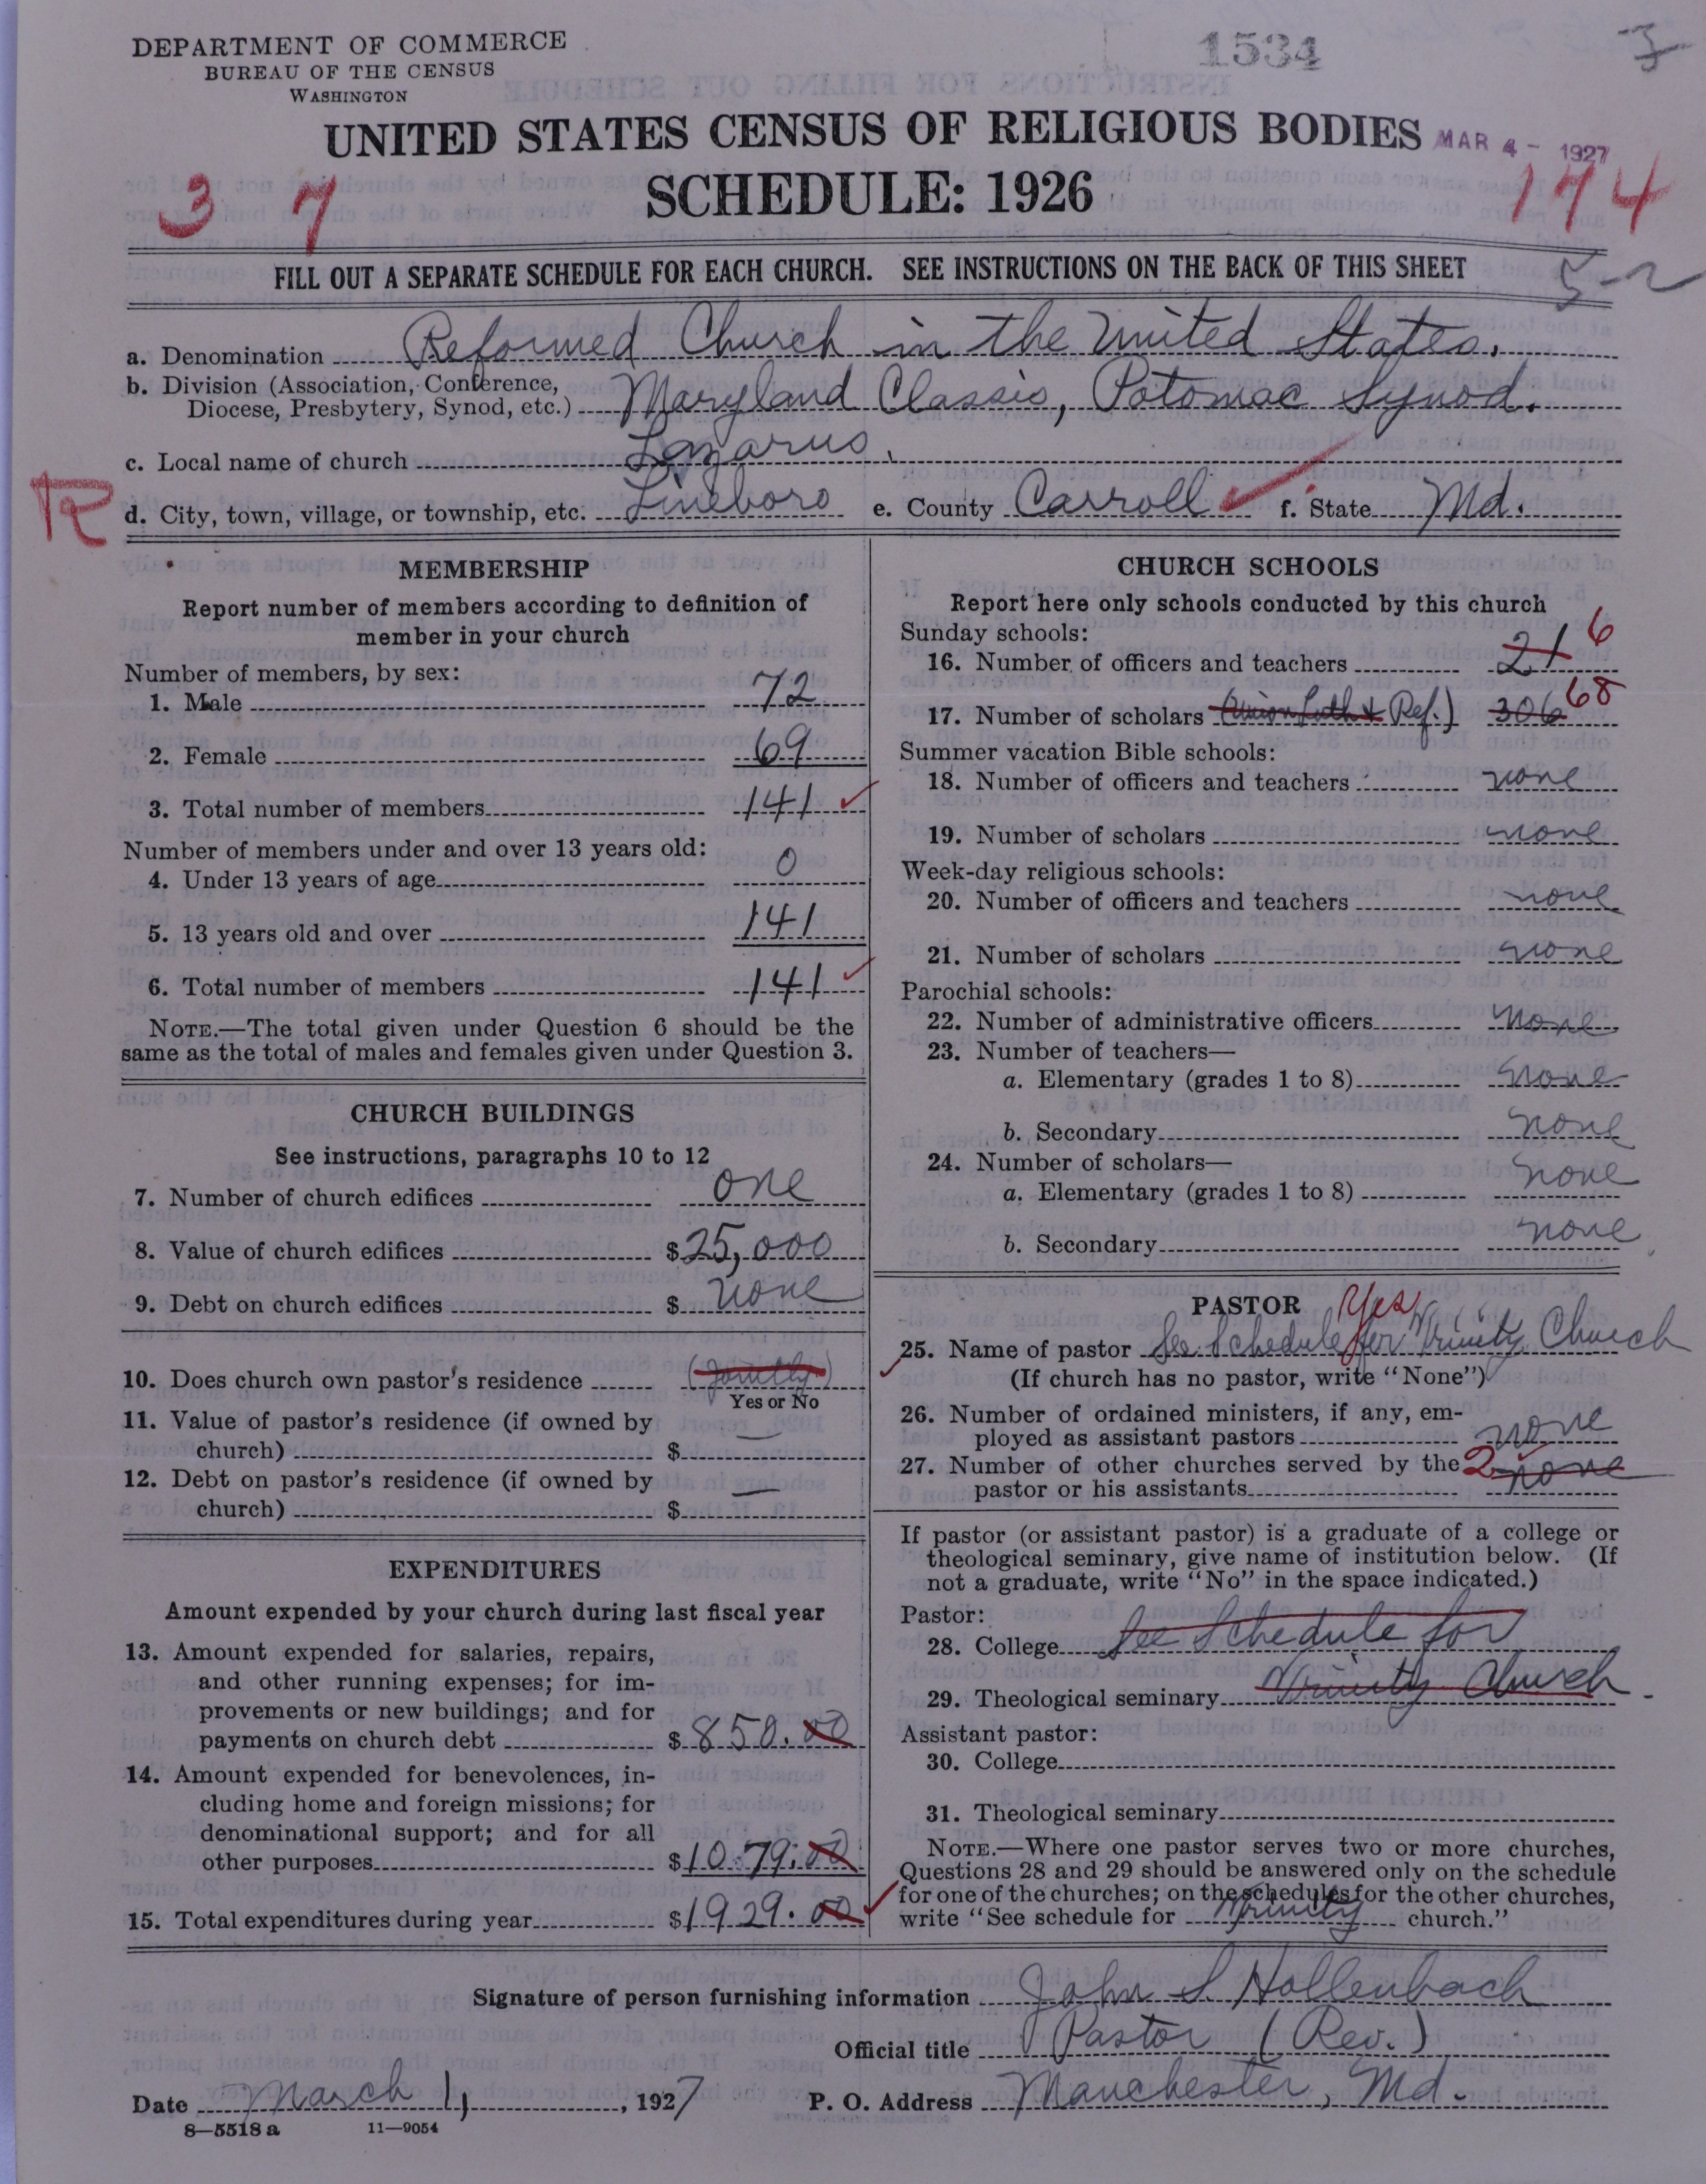 DEPARTMENT OF COMMERCE
BUREAU OF THE CENSUS
WASHINGTON
1534
UNITED STATES CENSUS OF RELIGIOUS BODIES
MAR 4 - 1927
SCHEDULE: 1926
3 7
174
FILL OUT A SEPARATE SCHEDULE FOR EACH CHURCH. SEE INSTRUCTIONS ON THE BACK OF THIS SHEET
a. Denomination Reformed Church in the United States.
b. Division (Association, Conference,
Diocese, Presbytery, Synod, etc.) Maryland Classis, Potomac Synod.
c. Local name of church Lazarus.
R
d. City, town, village, or township, etc. Lineboro e. County Carroll f. State Md.
MEMBERSHIP
Report number of members according to definition of
member in your church
Number of members, by sex:
1. Male 72
2. Female 69
3. Total number of members 141
Number of members under and over 13 years old:
4. Under 13 years of age 0
5. 13 years old and over 141
6. Total number of members 141
NOTE.—The total given under Question 6 should be the
same as the total of males and females given under Question 3.
CHURCH BUILDINGS
See instructions, paragraphs 10 to 12
7. Number of church edifices one
8. Value of church edifices $25,000
9. Debt on church edifices $ none
10. Does church own pastor's residence (jointly)
Yes or No
11. Value of pastor's residence (if owned by
church) $ —
12. Debt on pastor's residence (if owned by
church) $ —
EXPENDITURES
Amount expended by your church during last fiscal year
13. Amount expended for salaries, repairs,
and other running expenses; for im-
provements or new buildings; and for
payments on church debt $ 850.00
14. Amount expended for benevolences, in-
cluding home and foreign missions; for
denominational support; and for all
other purposes $1079.00
15. Total expenditures during year $1929.00
CHURCH SCHOOLS
Report here only schools conducted by this church
Sunday schools:
16. Number of officers and teachers 21 6
17. Number of scholars (Union Luth & Ref.) 306 68
Summer vacation Bible schools:
18. Number of officers and teachers none
19. Number of scholars none
Week-day religious schools:
20. Number of officers and teachers none
21. Number of scholars none
Parochial schools:
22. Number of administrative officers none
23. Number of teachers—
a. Elementary (grades 1 to 8) none
b. Secondary none
24. Number of scholars—
a. Elementary (grades 1 to 8) none
b. Secondary none
PASTOR Yes
25. Name of pastor See Schedule for Trinity Church
(If church has no pastor, write "None")
26. Number of ordained ministers, if any, em-
ployed as assistant pastors none
27. Number of other churches served by the 2
pastor or his assistants none
If pastor (or assistant pastor) is a graduate of a college or
theological seminary, give name of institution below. (If
not a graduate, write "No" in the space indicated.)
Pastor:
28. College See Schedule for
29. Theological seminary Trinity Church
Assistant pastor:
30. College
31. Theological seminary
NOTE.—Where one pastor serves two or more churches,
Questions 28 and 29 should be answered only on the schedule
for one of the churches; on the schedules for the other churches,
write "See schedule for Trinity church."
Signature of person furnishing information John S. Hollenbach
Official title Pastor (Rev.)
Date March 1, 1927 P. O. Address Manchester, Md.
8—5518 a 11—9054